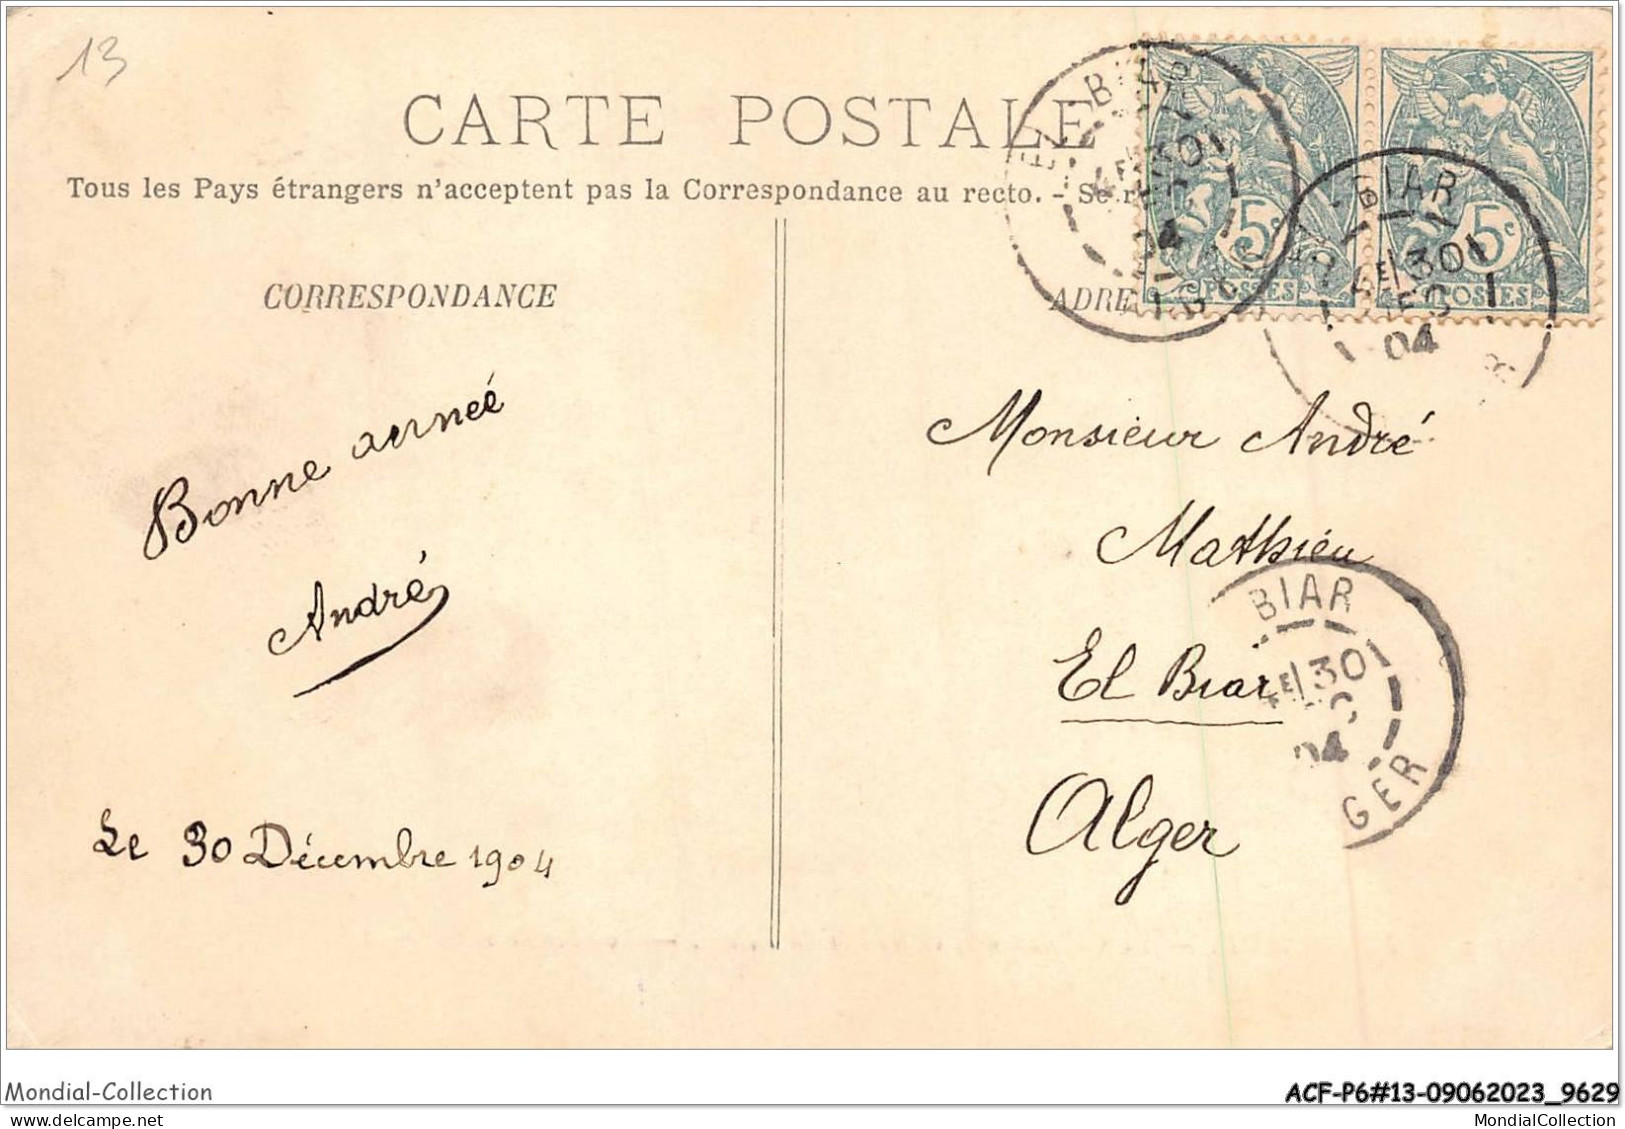 13
CARTE POSTALE
Tous les Pays étrangers n'acceptent pas la Correspondance au recto. - Se r
CORRESPONDANCE
ADRE
5c
POSTES
5c
POSTES
EL-BIAR
30
04
BIAR
30
04
Bonne année
André
Le 30 Décembre 1904
Monsieur André
Mathieu
El Biar
Alger
BIAR
30
04
GER
Mondial-Collection
ACF-P6#13-09062023_9629
MondialCollection